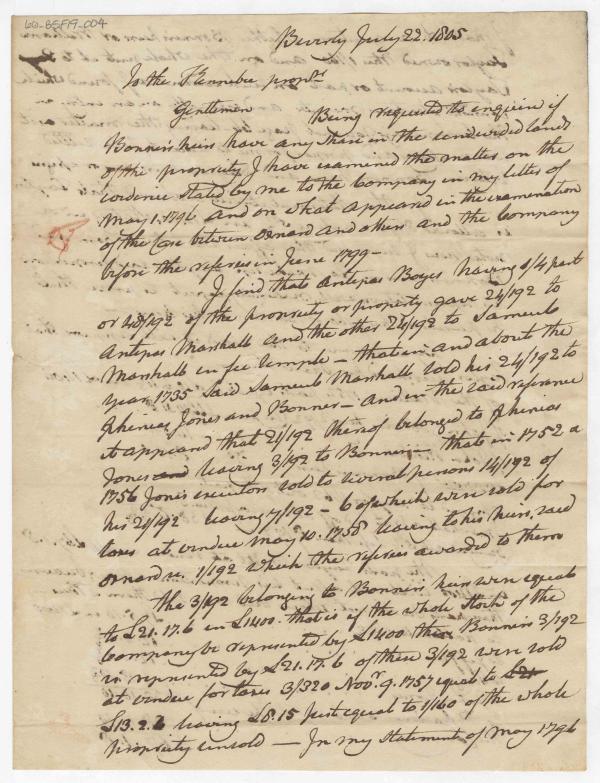 60-BSF19-004
Beverly July 22. 1805
To the Kennebec propts
Gentlemen Being requested to enquire if
Bonner's heirs have any share in the undivided lands
of the propriety, I have examined the matter on the
evidence stated by me to the Company in my letter of
May 1. 1796 and on what appeared in the examination
of the Case between Ornard and others and the Company
before the referees in June 1799 —
I find that Antipas Boyes having 1/4 part
or 48/192 of the propriety or property gave 24/192 to
Antipas Marshall and the other 24/192 to Samuel
Marshall in fee simple — that in and about the
year 1735 said Samuel Marshall sold his 24/192 to
Phineas Jones and Bonner — And in the said reference
it appeared that 21/192 thereof belonged to Phineas
Jones and leaving 3/192 to Bonner — that in 1752 a
1756 Jones executors sold to several persons 14/192 of
his 21/192 leaving 7/192 — 6 of which were sold for
taxes at vendue May 10. 1758 leaving to his heirs, said
Ornard &c. 1/192 which the referees awarded to them
The 3/192 belonging to Bonner's heirs were equal
to £21.17.6 in £1400. that is if the whole Stock of the
Company be represented by £1400 then Bonner's 3/192
is represented by £21.17.6 of these 3/192 were sold
at vendue for taxes 3/320 Novr. 9. 1757 equal to £21
£13.2.6 leaving £8.15 just equal to 1/160 of the whole
Propriety unsold — In my statement of May 1796